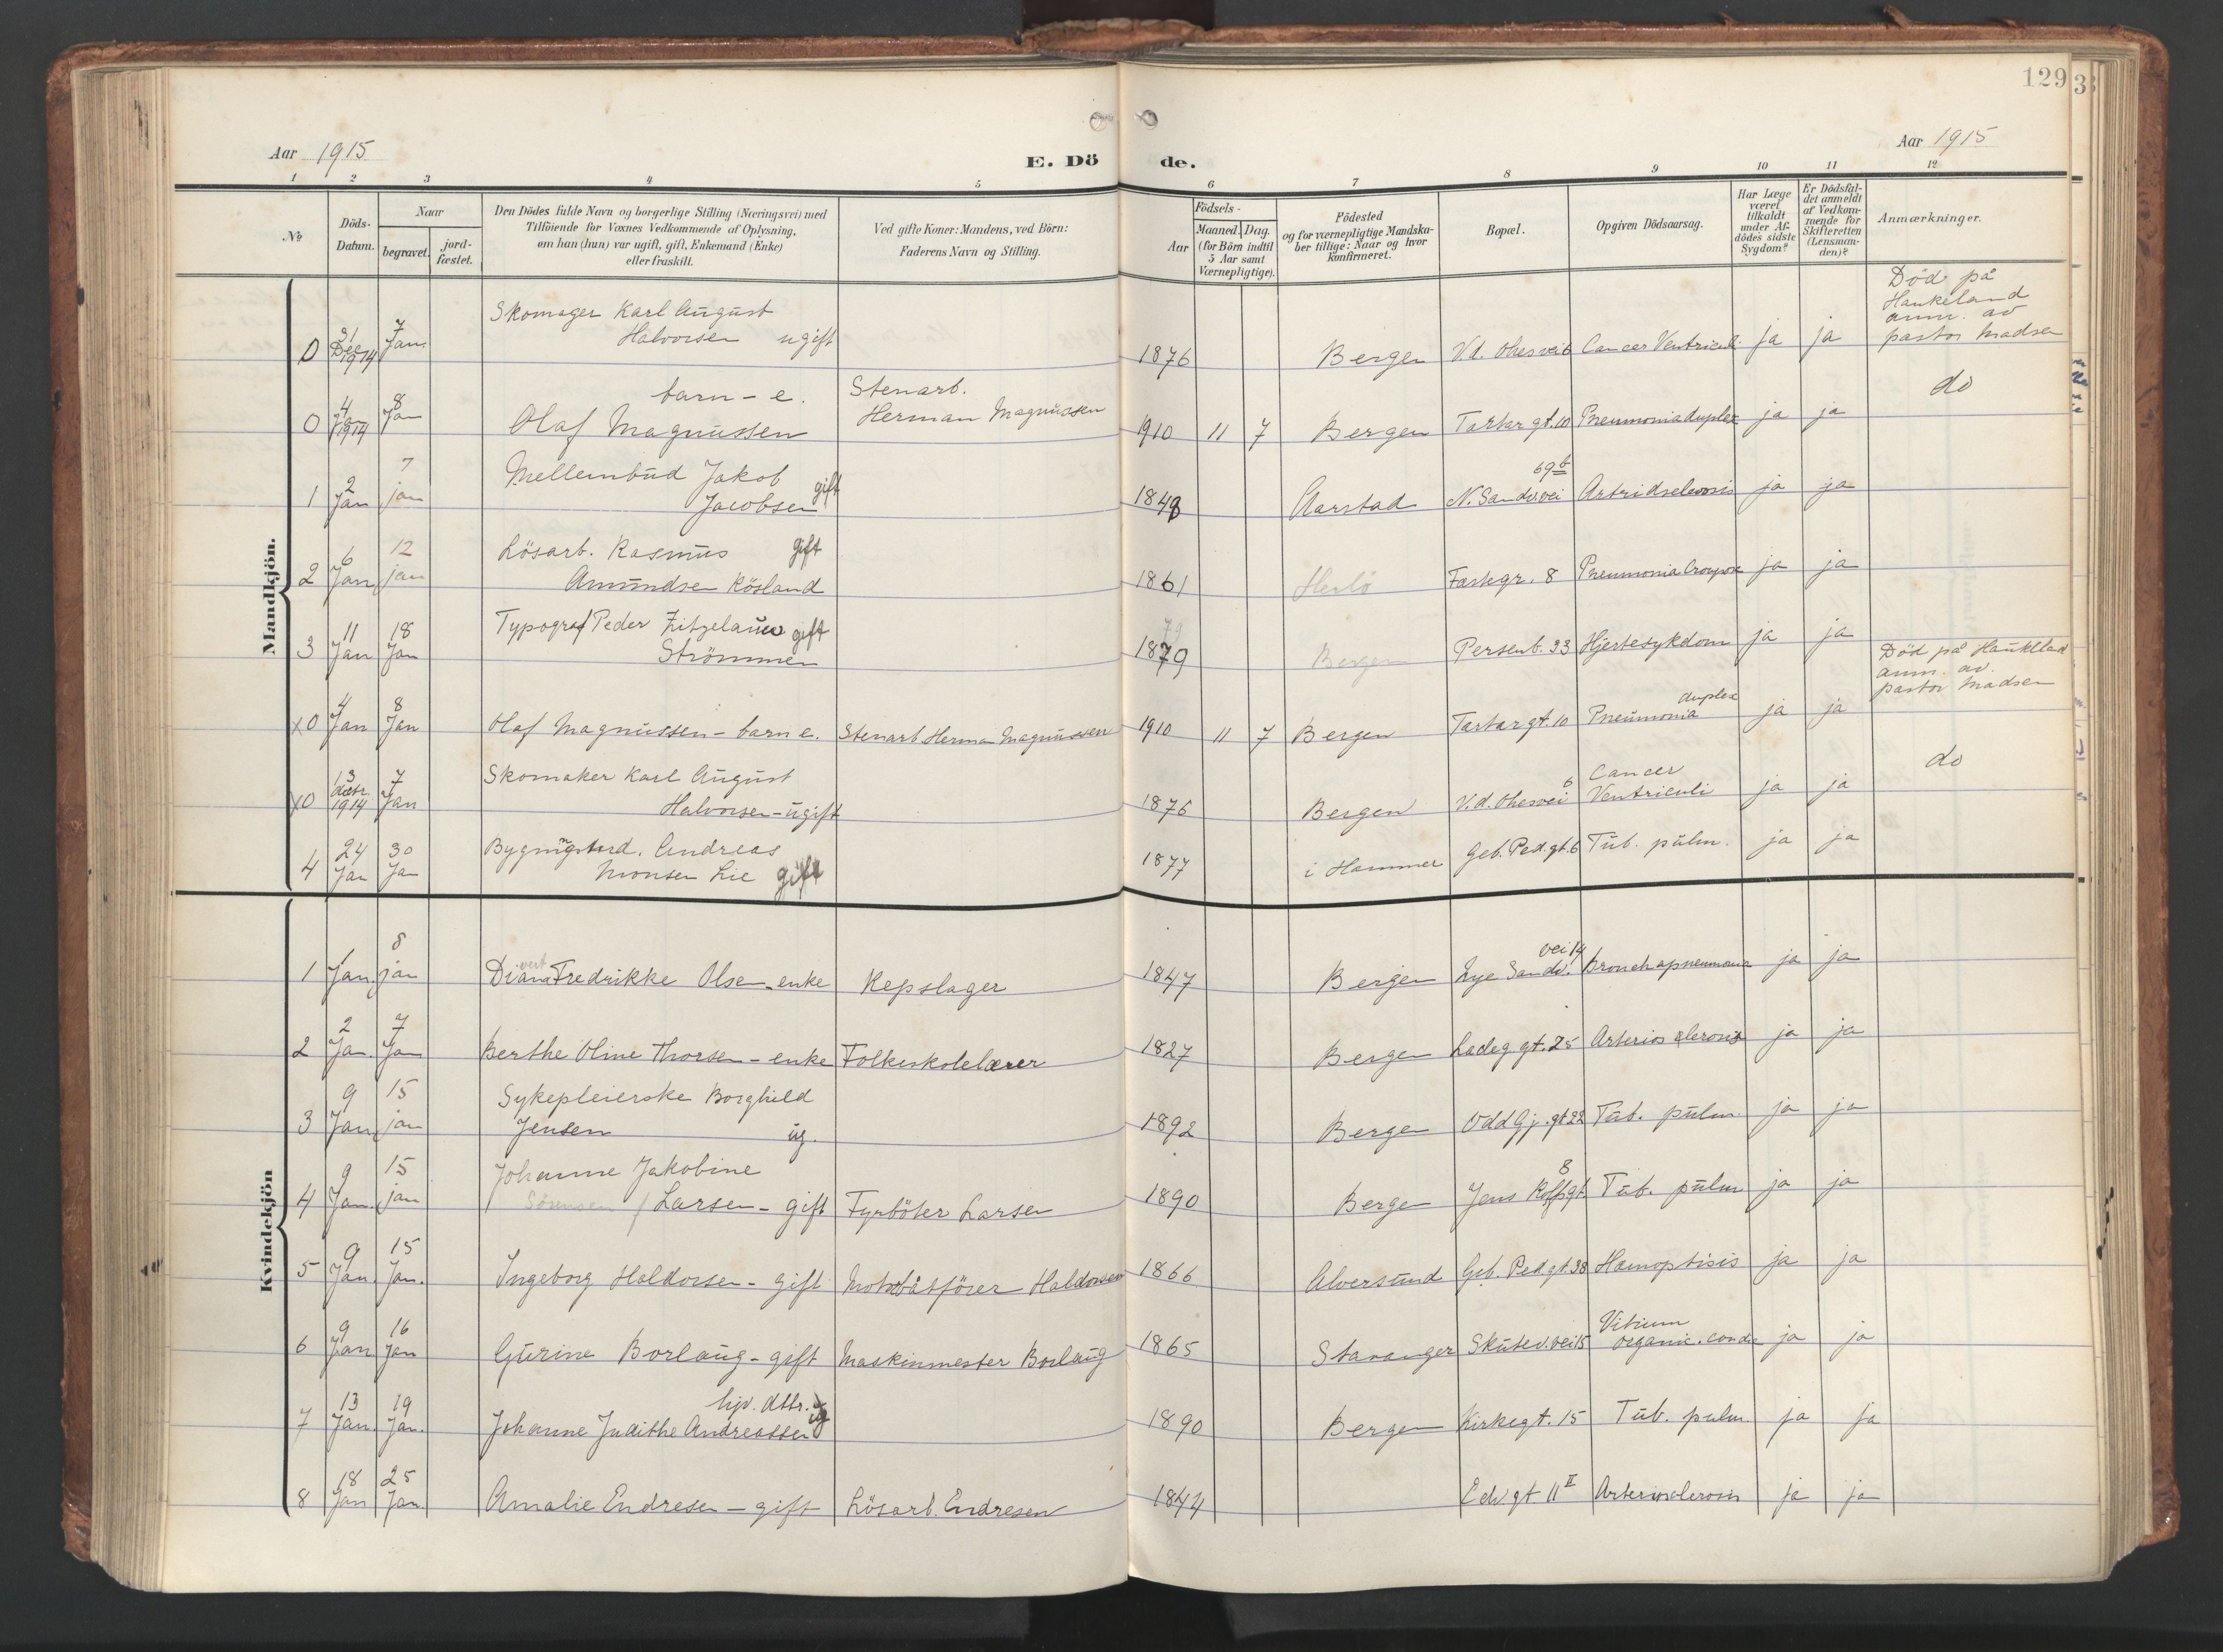 129
Aar 1915
E. Dö de.
Aar 1915
1 2 3 4 5 6 7 8 9 10 11 12
No
Döds-
Datum.
Naar
begravet.
jord-
fæstet.
Den Dödes fulde Navn og borgerlige Stilling (Næringsvei) med
Tilföiende for Voxnes Vedkommende af Oplysning,
om han (hun) var ugift, gift, Enkemand (Enke)
eller fraskilt.
Ved gifte Koner: Mandens, ved Börn:
Faderens Navn og Stilling.
Födsels-
Aar
Maaned. Dag.
(for Börn indtil
5 Aar samt
Værnepligtige).
Födested
og for værnepligtige Mandska-
ber tillige: Naar og hvor
konfirmeret.
Bopæl.
Opgiven Dödsaarsag.
Har Læge
været
tilkaldt
under Af-
dödes sidste
Sygdom?
Er Dödsfal-
det anmeldt
af Vedkom-
mende for
Skifteretten
(Lensman-
den)?
Anmærkninger.
Mandkjön.
0 31 Dec 1914 7 Jan. Skomager Karl August
Halvorsen ugift 1876 Bergen V.d. Ohesvei 6 Cancer Ventriculi ja ja
Död på
Haukeland
anm. av
pastor Madsen
0 4 Jan 1914 8 Jan barn - e. Stenarb.
Olaf Magnussen Herman Magnussen 1910 11 7 Bergen Tartargt. 10 Pneumonia duplex ja ja do
1 2 Jan 7 jan Mellembud Jakob
Jacobsen gift 1848 Aarstad N. Sandv.vei 69b ja ja
2 6 Jan 12 jan Lösarb. Rasmus gift
Amundsen Rösland 1861 Herlö 8 Pneumonia Crouposa ja ja
3 11 Jan 18 Jan Typograf Peder gift
Strömmen 1879 79 Bergen Persenb. 33 Hjertesykdom ja ja
Död på Haukeland
anm. av.
pastor Madsen
x0 4 Jan 8 Jan Olaf Magnussen - barn e. Stenarb. Herman Magnussen 1910 11 7 Bergen Tartargt. 10 Pneumonia duplex ja ja
x0 1914 7 Jan Skomaker Karl August
Halvorsen - ugift 1876 Bergen V.d. Ohesvei 6 Cancer
Ventriculi ja ja do
4 24 Jan 30 Jan Andreas
Monsen Lie gift 1877 i Hammer Geb. Ped. gt. 6 Tub. pulm. ja ja
Kvindekjön
1 1 Jan. 8 jan Diana Fredrikke Olsen - enke Repslager 1847 Bergen Nye Sandv. vei 14 Bronchopneumonia ja ja
2 2 Jan. 7 Jan Berthe Oline Thorsen - enke Folkeskolelærer 1827 Bergen Ladeg.gt. 25 Arteriosclerosis ja ja
3 9 Jan 15 jan Sykepleierske Borghild
Jensen ug. 1892 Bergen Odd Gj. gt 22 Tub. pulm. ja ja
4 9 Jan. 15 jan Johanne Jakobine
Sörensen / Larsen - gift Fyrböter Larsen 1890 Bergen Jens Rolfsgt. 8 Tub. pulm ja ja
5 9 Jan. 15 Jan. Ingeborg Haldorsen - gift Motorbåtförer Haldorsen 1866 Alversund Geb. Ped.gt 38 Hæmoptisis ja ja
6 9 Jan 16 Jan Gurine Borlaug - gift Maskinmester Borlaug 1865 Stavanger Skutev. vei 15 Vitium
organic. cordis ja ja
7 13 Jan. 19 Jan. Johanne Judithe Andreassen ug 1890 Bergen Kirkegt. 15 Tub. pulm. ja ja
8 18 Jan 25 Jan. Amalie Endresen - gift Lösarb. Endresen 1844 Edv gt 11 II Arteriosclerosis ja ja